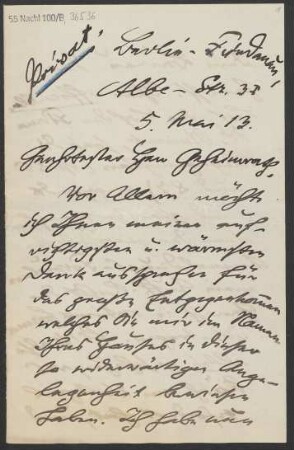 55 Nachl 100/B, 36536
Privat!
Berlin-Friedenau,
Albe-Str. 38
5. Mai 13.
Hochverehrter Herr Geheimrath,
Vor Allem möchte
ich Ihnen meinen auf-
richtigsten u. wärmsten
Dank aussprechen für
das große Entgegenkommen
welches Sie mir im Namen
Ihres Hauses in dieser
so widerwärtigen Ange-
legenheit bewiesen
haben. Ich habe nun